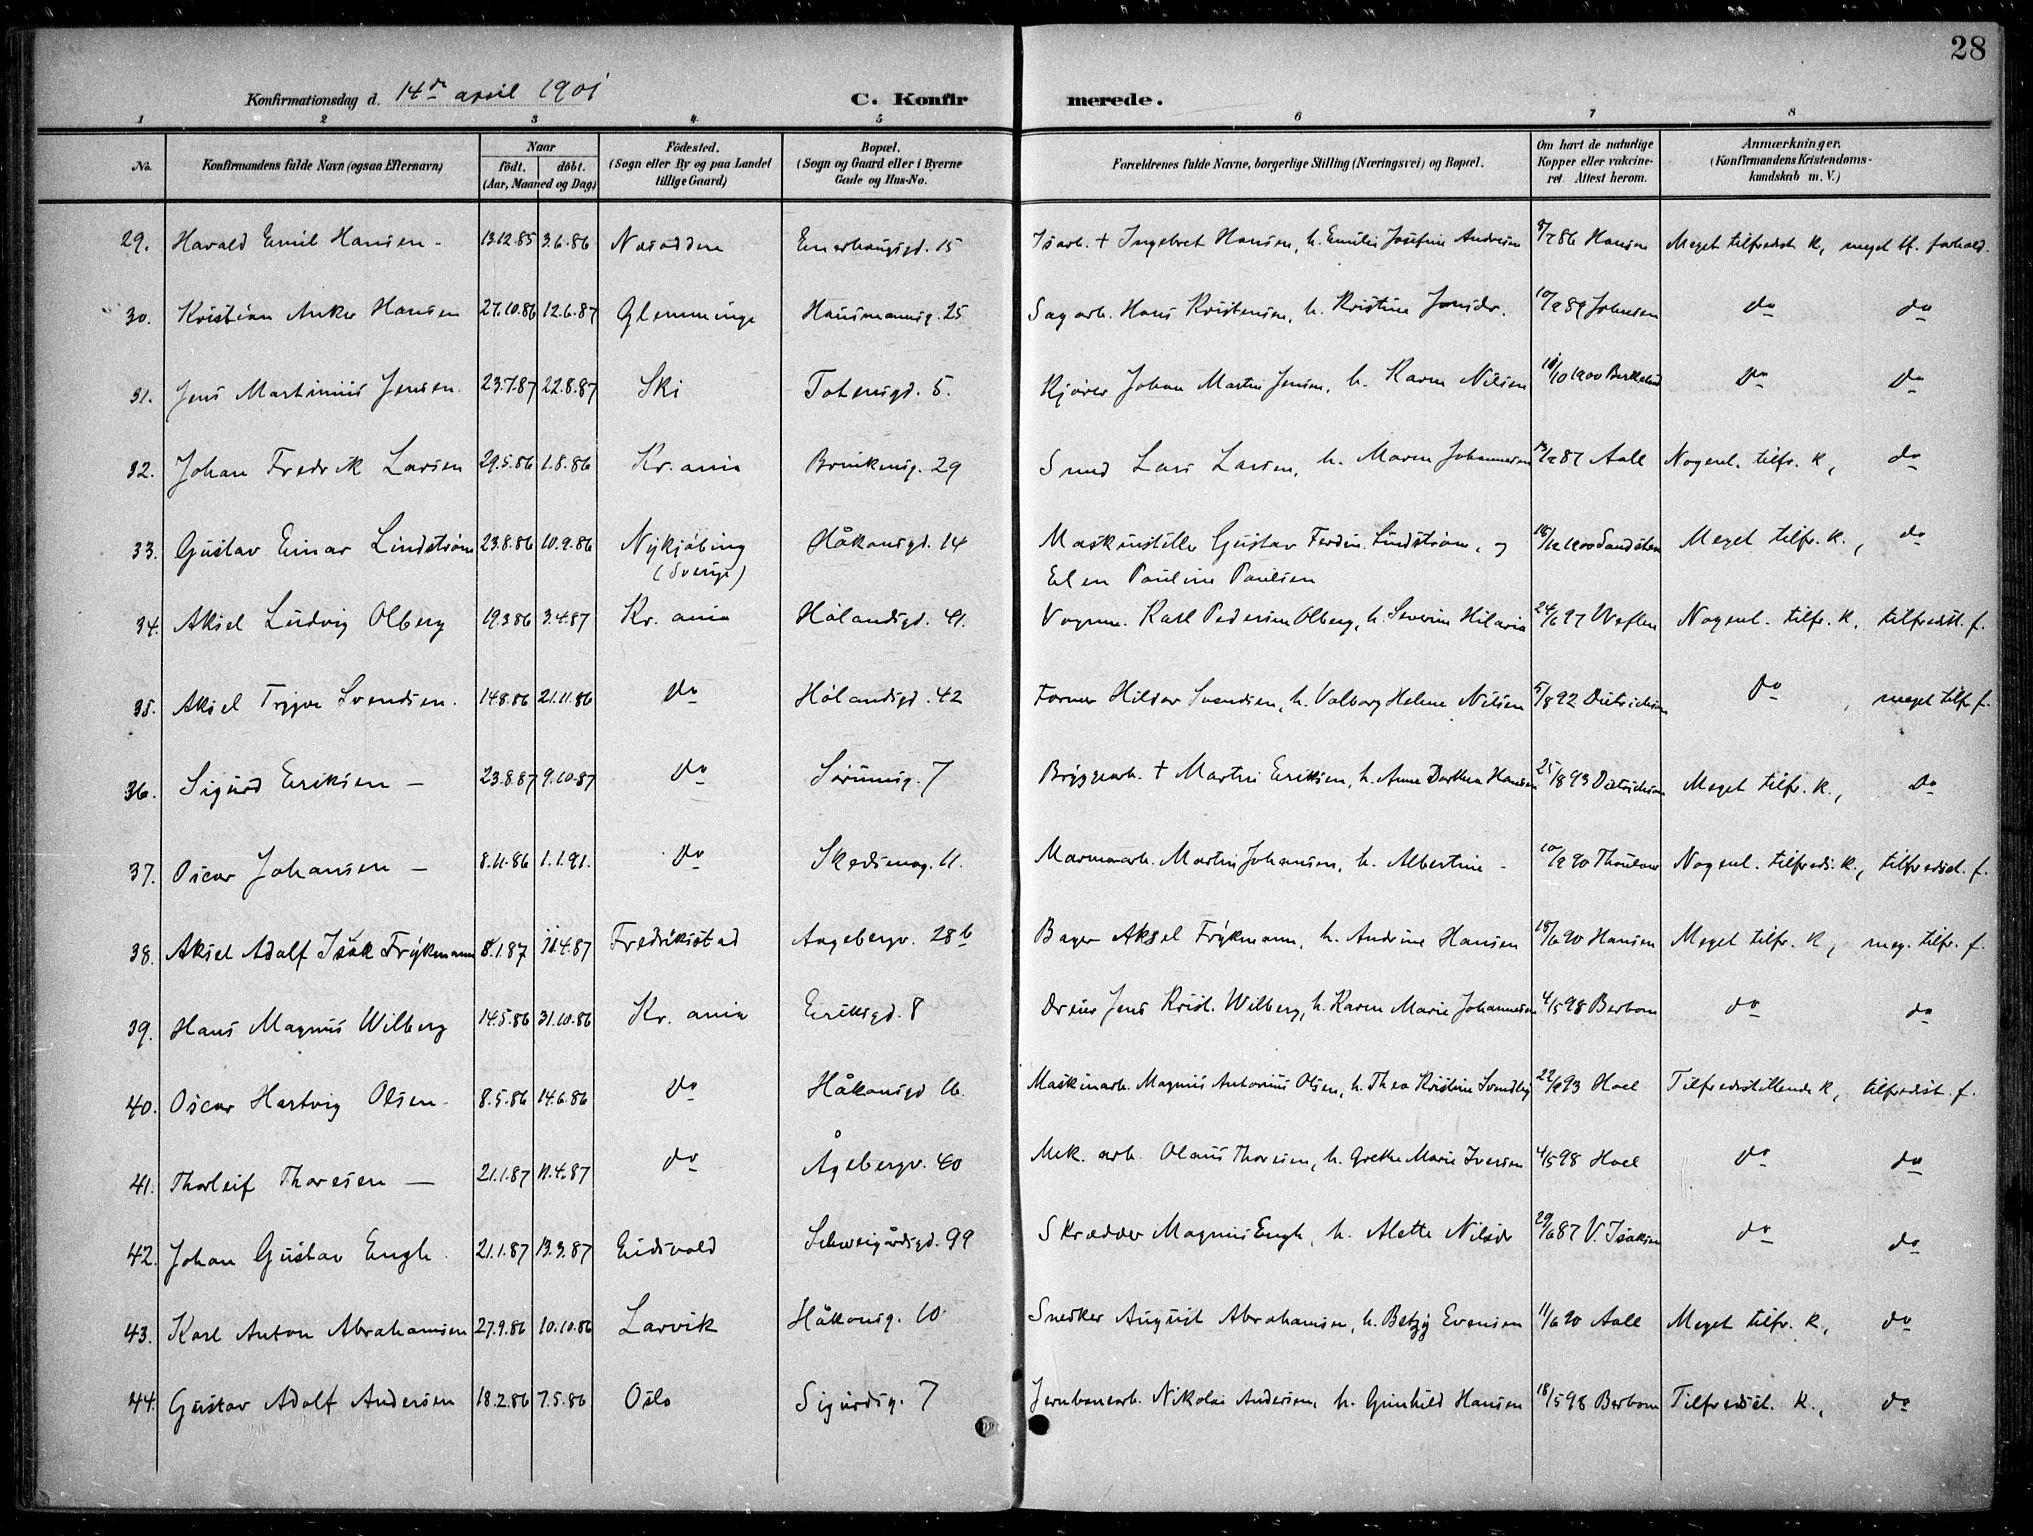 28
Konfirmationsdag d. 14de april 1901 C. Konfirmerede.
1 2 3 4 5 6 7 8
No. Konfirmandens fulde Navn (ogsaa Efternavn) Naar födt. döbt. (Aar, Maaned og Dag) Födested. (Sogn eller By og paa Landet tillige Gaard) Bopæl. (Sogn og Gaard eller i Byerne Gade og Hus-No. Forældrenes fulde Navne, borgerlige Stilling (Næringsvei) og Bopæl. Om havt de naturlige Kopper eller vakcineret. Attest herom. Anmærkninger. (Konfirmandens Kristendomskundskab m. V.)
29. Harald Emil Hansen - 13.12.85 3.6.86 Nesodden Enerhaugsgd. 15 Isarb. + Ingebret Hansen, h. Emilie Josefine Andresen 8/7 86 Hansen Meget tilfredst. k, meget tf. forhold.
30. Kristian Anker Hansen 27.10.86 12.6.87 Glemminge Hausmannsg. 25 Sagarb. Hans Kristensen, h. Kristine Jonsdr. 10/9 89 Johnsen do do
31. Jens Martinius Jensen. 23.7.87 22.8.87 Ski Totensgd. 5. Kjörer Johan Martin Jensen, h. Karen Nilsen 11/10 1900 do do
32. Johan Fredrik Larsen 29.5.86 1.8.86 Kr.ania Brinkensg. 29 Smed Lars Larsen, h. Maren Johannesen 13/9 87 Aall Nogenl. tilfr. k, do
33. Gustav Einar Lindström 23.8.86 10.9.86 Nykjöbing (Sverige) Håkonsgd. 14 Maskinstiller Gustav Ferdin. Lindström, og 18/12 1900 Sandsten Meget tilfr. k., do
Elen Pauline Paulsen
34. Aksel Ludvig Olberg 19.3.86 3.4.87 Kr. ania Hölandsgd. 41. Vognm. Karl Pedersen Olberg, h. Severine Hilaria 24/6 97 Weflen Nogenl. tilfr. k, tilfredst. f.
35. Aksel Trygve Svendsen. 14.8.86 21.11.86 do Hölandsgd. 42 Former Hilsar Svendsen, h. Valborg Helene Nilsen 5/8 92 Dietrichson do, meget tilfr f.
36. Sigurd Eriksen - 23.8.87 9.10.87 do Sörumsg. 7 Bryggearb. + Martin Eriksen, h. Anne Dorthea Hansen 25/8 93 Dietrichson Meget tilfr. k., do
37. Oscar Johansen - 8.11.86 1.1.91. do Skedsmog. 11. Marmorarb. Martin Johansen, h. Albertine - 10/9 90 Thaulow Nogenl. tilfreds. k., tilfredsst. f.
38. Aksel Adolf Isak Frykmann 8.1.87 11.4.87 Fredrikstad Aagebergv. 28b Bager Aksel Frykmann, h. Andrine Hansen 18/6 90 Hansen Meget tilfr. k, meg. tilfr. f.
39. Hans Magnus Wilberg 14.5.86 31.10.86 Kr. ania Eriksgd. 8 Dreier Jens Krist. Wilberg, h. Karen Marie Johannesen 4/5 98 Berbom do do
40. Oscar Hartvig Olsen 8.5.86 14.6.86 do Håkonsgd 16. Maskinarb. Magnus Antonius Olsen, h. Thea Kristine Svendby 22/9 93 Hoel Tilfredsstillende k, tilfredsst. f.
41. Thorleif Thoresen - 21.1.87 11.4.87 do Ågebergv. 40 Mek. arb. Olaus Thoresen, h. Grethe Marie Iversen 4/5 98 Hoel do do
42. Johan Gustav Engh. 21.1.87 13.3.87 Eidsvold Schweigårdsgd. 99 Skrædder Magnus Engh, h. Alette Nilsdr 29/6 87 V. Isaksen do do
43. Karl Anton Abrahamsen 27.9.86 10.10.86 Larvik Håkonsg. 10 Snedker August Abrahamsen, h. Betzy Evensen 11/6 90 Aall Meget tilfr. k, do
44. Gustav Adolf Andersen 18.2.86 7.5.86 Oslo Sigurdsg. 7 Jernbanearb. Nikolai Andersen, h. Gunhild Hansen 18/5 98 Berbom Tilfredsst. k., do